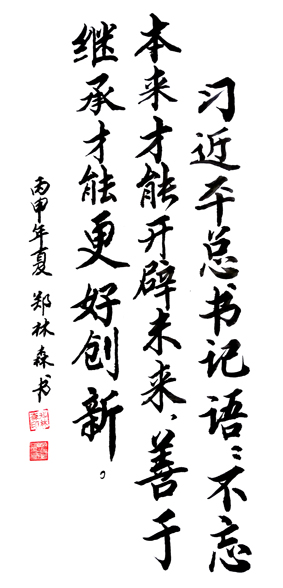 习近平总书记语：不忘
本来才能开辟未来，善于
继承才能更好创新。
丙申年夏 郑林森书